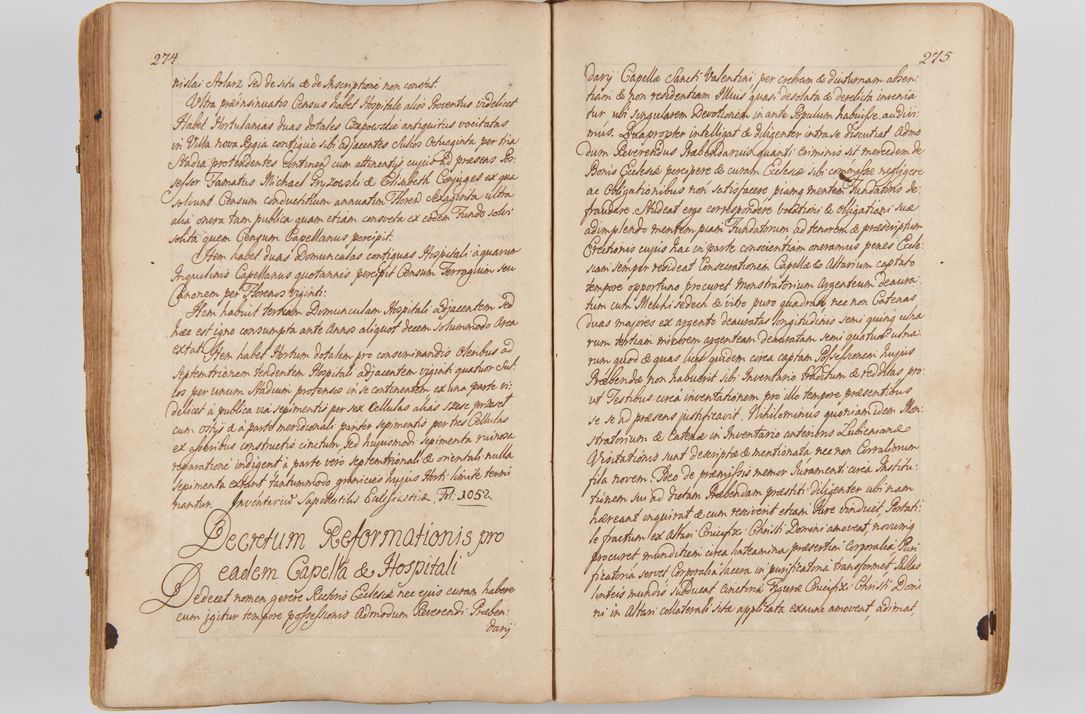 274
nislai Stolarz sed de situ & de Inscriptione non constat.
Ultra præinsinuatos Census habet Hospitale alios Proventus videlicet
Habet Hortulanias duas dotales Czapowskie antiquitus vocitatas
in Villa nova Regia contigue sibi adjacentes Sulcos Octuaginta per tria
Stadia protendentes continen: cum attinentijs cujus ad præsens Pos-
sessor Famatus Michael & Elisabeth Conjuges ex qua
solvunt Censum conductitium annuatim Floren: Sexaginta ultra
alia onera tam publica quam etiam consueta ex eodem Fundo solvi
solita quem Censum Capellanus percipit.
Item habet duas Domunculas contiguas Hospitali à quarum
Inquilinis Capellanus quotannis percipit Censum Terragium seu
Canonem per Florenos viginti:
Item habuit tertiam Domunculam Hospitali adjacentem sed
hæc est igne consumpta ante Annos aliquot decem solummodo Area
extat. Item habet Hortum dotalem pro conseminandis Oleribus ad
Septemtrionem tendentem Hospitali adjacentem viginti quatuor Sul-
cos per unum Stadium protensos in se continentem ex una parte vi-
delicet a publica via sepimentis per sex Cellulas alias
cum & à parte meridionali pariter sepimentis per tres Cellulas
ex asseribus constructis cinctum, sed hujusmodi sepimenta ruinosa
reparatione indigent à parte vero septemtrionali & orientali nulla
sepimenta extant tantummodo granicies hujus Horti limite termi
nantur. Inventarium Supellectilis Ecclesiasticæ Fol. 1052.
Decretum Reformationis pro
eadem Capella & Hospitali
Dedecet nomen gerere Rectoris Ecclesiæ nec ejus curam habere
cum igitur tempore possessionis Admodum Reverendi Præben-
darij
275
darij Capellæ Sancti Valentini per crebram & diuturnam absen-
tiam & non residentiam Illius quasi desolata & derelicta invenia
tur ubi singularem Devotionem in ante Populum habuisse audivi-
mus. Quapropter intelligat & diligenter intra se discutiat Admo
dum Reverendus Præbendarius quanti criminis sit mercedem de
Bonis Ecclesiæ percipere & curam Ecclesiæ sibi commissæ negligere
ac Obligationibus non satisfacere piamq mentem Fundatoris de-
fraudare. Studeat ergo correspondere vocationi & Obligationi suæ
adimplendo mentem piam Fundatorum ad tenorem & præscriptum
Erectionis cujus hac in parte conscientiam oneramus penes Eccle-
siam semper resideat Consecrationem Capellæ & Altarium captato
tempore opportuno procuret Monstratorium Argenteum deaura-
tum cum Melchisedech & vitro puro quadrato nec non Catenas
duas majores ex argento deauratas longitudinis semi quinq ulna
rum tertiam minorem argenteam deauratam semi quatuor ulna-
rum quod & quas licet quidem circa captam Possessionem hujus
Præbendæ non habuerit sibi Inventario traditum & redditas pro-
ut Testibus circa inventationem pro illo tempore præsentibus
se se ad præsens justificavit. Nihilominus quoniam idem Mon
stratorium & Catenæ in Inventario anterioris Lubiensianæ
Visitationis sunt descriptæ & mentionata nec non Corraliorum
fila novem. Ideo de præmissis memor Juramenti circa Institu-
tionem sui ad dictam Præbendam præstiti diligenter ubi nam
hæreant inquirat & cum rescivent etiam Jure vindicet, Portati-
le fractum ex Altari Crucifixi Christi Domini amoveat, novumq
procuret munditiem circa linteamina præsertim Corporalia Puri
ficatoria servet, Corporalia lacera in purificatoria transformet Pallas
linteis mundis subducat cinctoria Figuræ Crucifixi Christi Domi
ni in Altari collaterali site applicata exinde amoveat, adimat